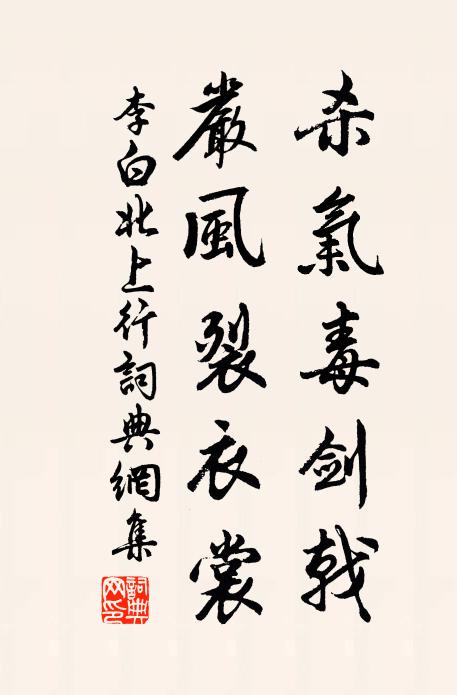 杀氣毒剑戟
嚴風裂衣裳
李白北上行詞典網集
詞典网印